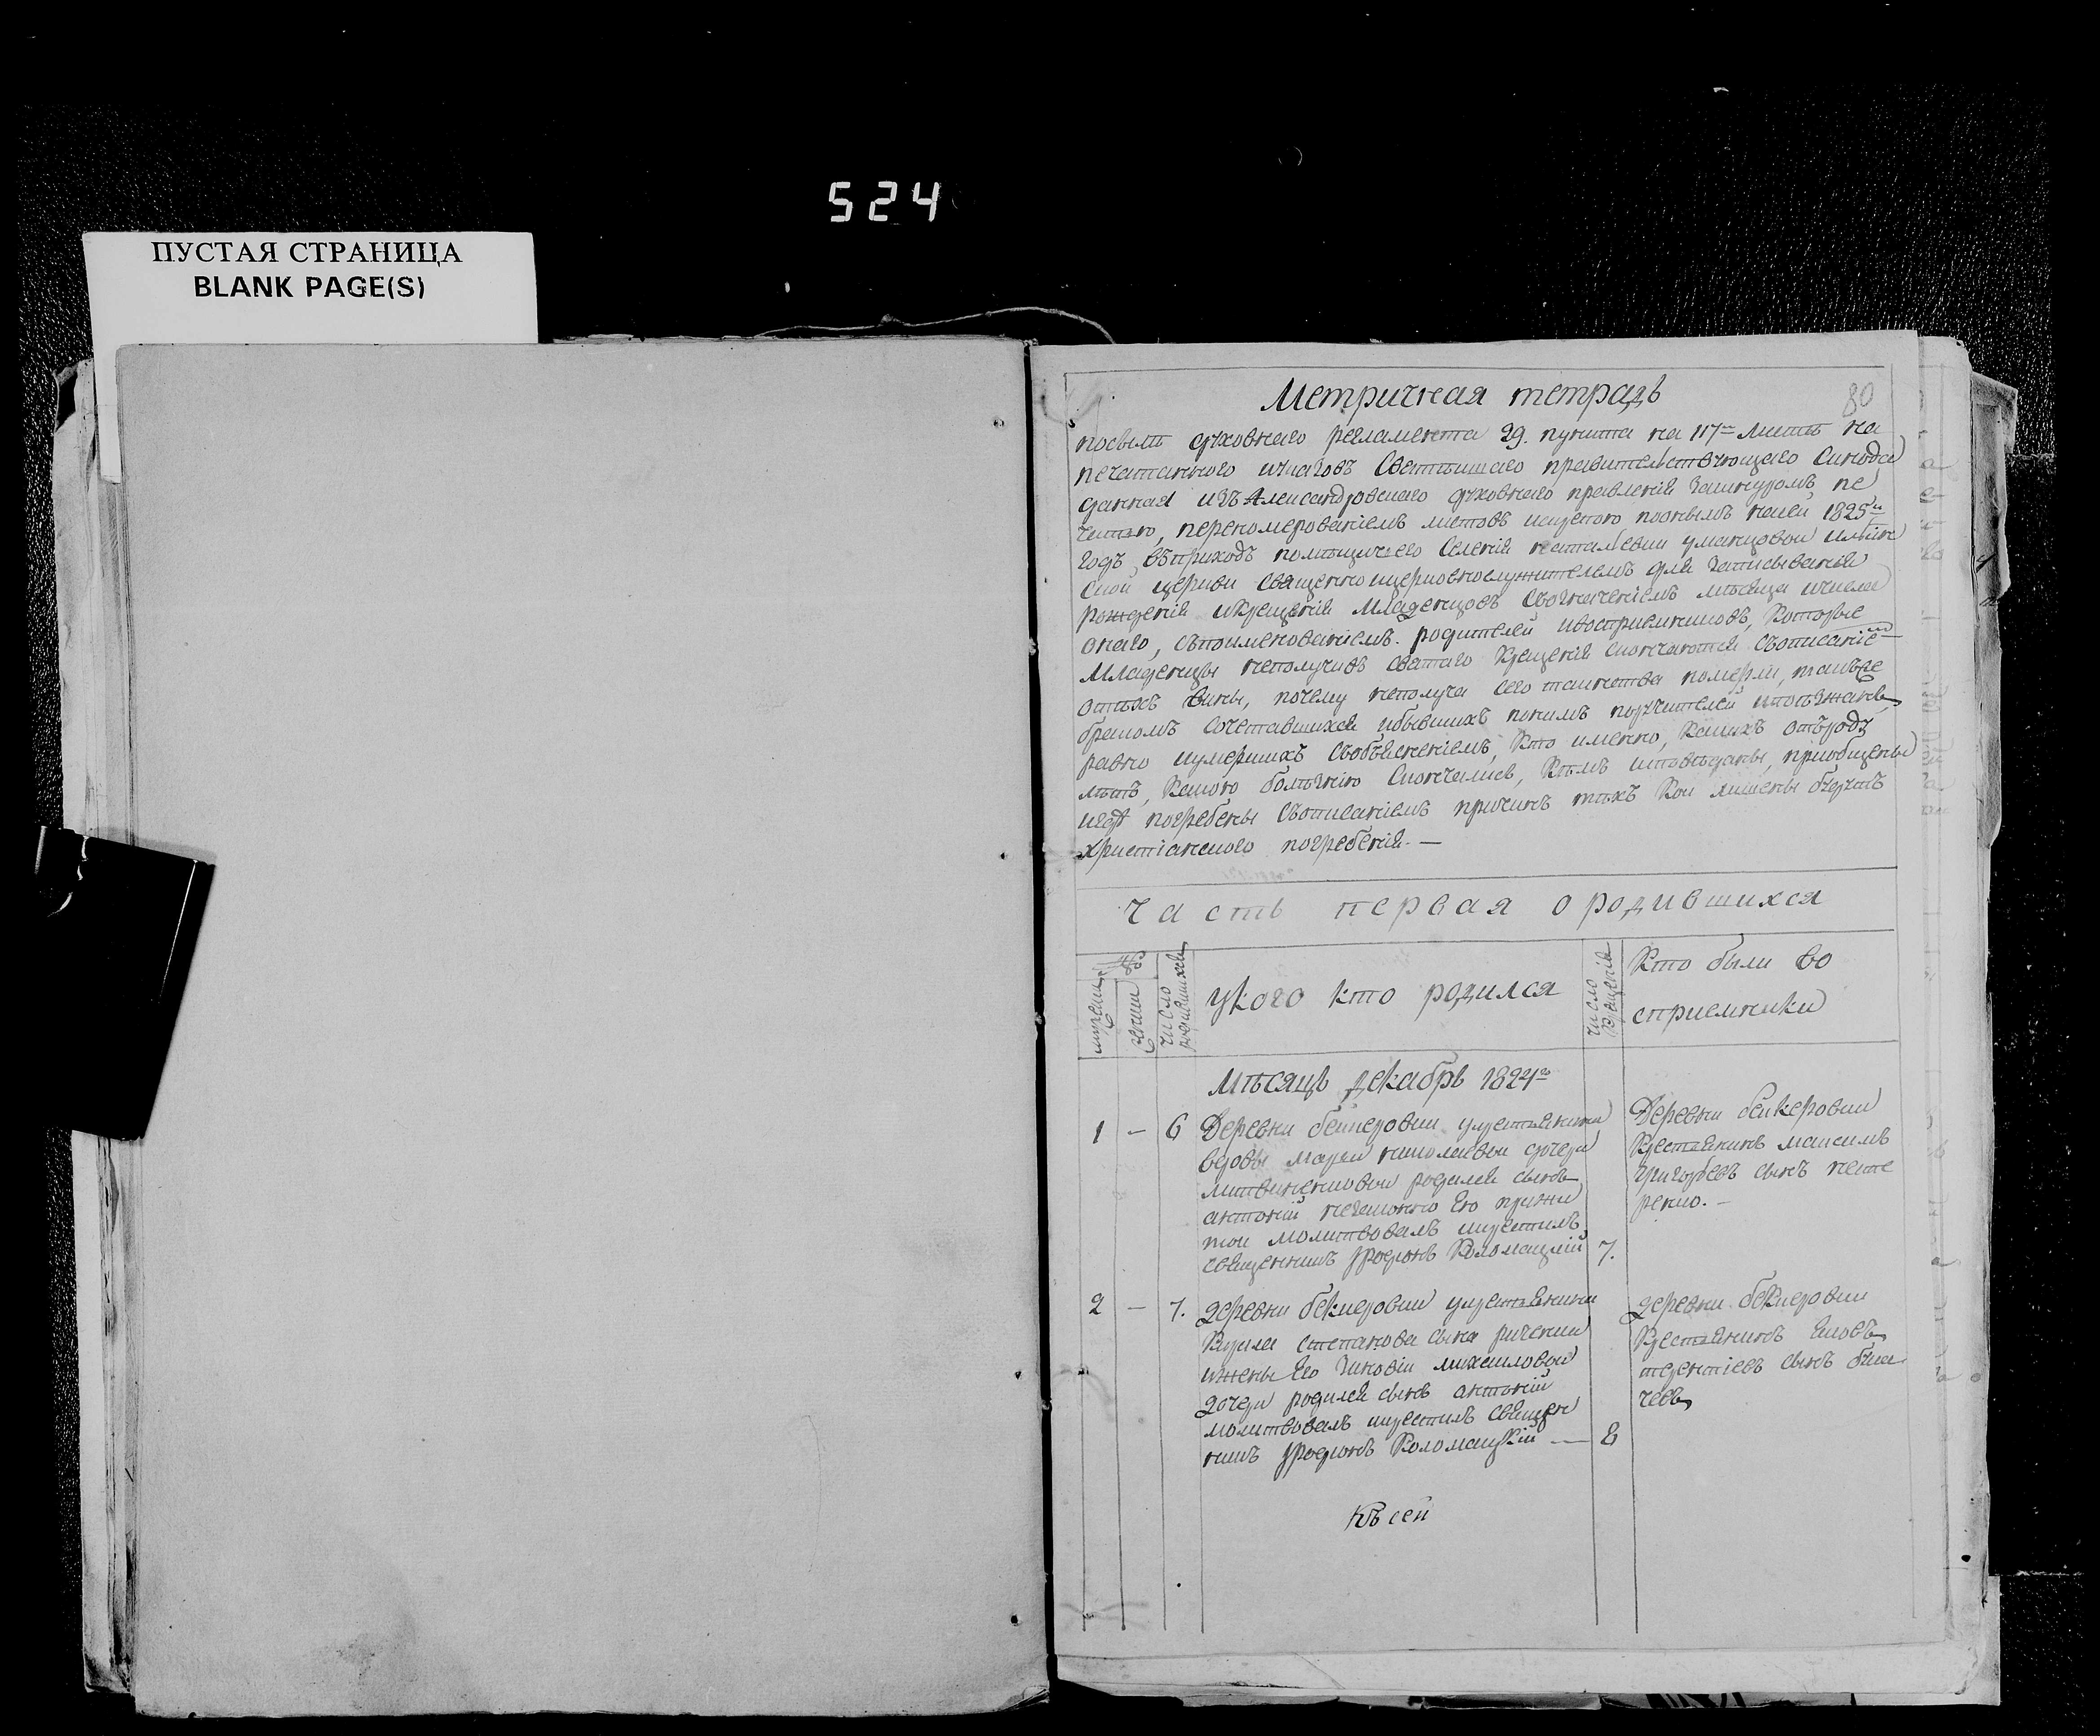 524
ПУСТАЯ СТРАНИЦА
BLANK PAGE(S)
Метрическая тетрадь
80
посылѣ духовнаго регламента 29. пункта на 117м листѣ на
печатаннаго имаговъ Святѣйшаго правительствующаго Синода
данная изъ Александровскаго духовнаго правленія Зашнуромъ пе
чатью, перено­мерованіемъ листовъ искрепою, поонымъ напей 1825й
годъ, въприходъ помѣщичьего Селенія
Ской церкви Священноицерковнослужителемъ для Записыванія
рожденія икрещенія Младенцовъ Созначеніемъ мѣсяца ичисла
онаго, съпоименованіемъ родителей ивоспріемниковъ, Которые
Младенцы неполучивъ святаго Крещенія скончаются Съописаніемъ
отѣхъ вины, почему неполуча сего таинства померли, такъже
бракомъ Сочетавшихся ибывшихъ понимъ поручителей ипоѣзжанъ,
равно иумершихъ Собъясненіемъ, Кто именно, Какихъ отъроду
лѣтъ, Какою болѣзнію Скончались, Кѣмъ исповѣданы, приобщены
игдѣ погребены Съописаніемъ причинъ тѣхъ Кои лишены будутъ
христіанскаго погребенія. —
часть первая о родившихся
№
мужеска
женска
число родившихся
укого кто родился
число крещенія
Кто были во
спріемники
Мѣсяцъ декабрь 1824го
1 — 6 Деревни бейкеровки укрестьянки
вдовы марьи николаевы дочери
литвиненковой родился сынъ
антоній незаконно Его прижи
той молитвовалъ икрестилъ
священникъ Иродіонъ Коломацкій 7.
Деревни бейкеровки
Крестьянинъ максимъ
Григорьевъ сынъ нете
ренко. —
2 — 7. деревни бекиеровки укрестьянина
Кирила степанова сына
ижены Его Зиновіи михаиловой
дочери родился сынъ антоній
молитвовалъ икрестилъ священ
никъ Иродіонъ Коломацкій — 8
деревни бекиеровки
Крестьянинъ Яковъ
терентіевъ сынъ
Къ сей